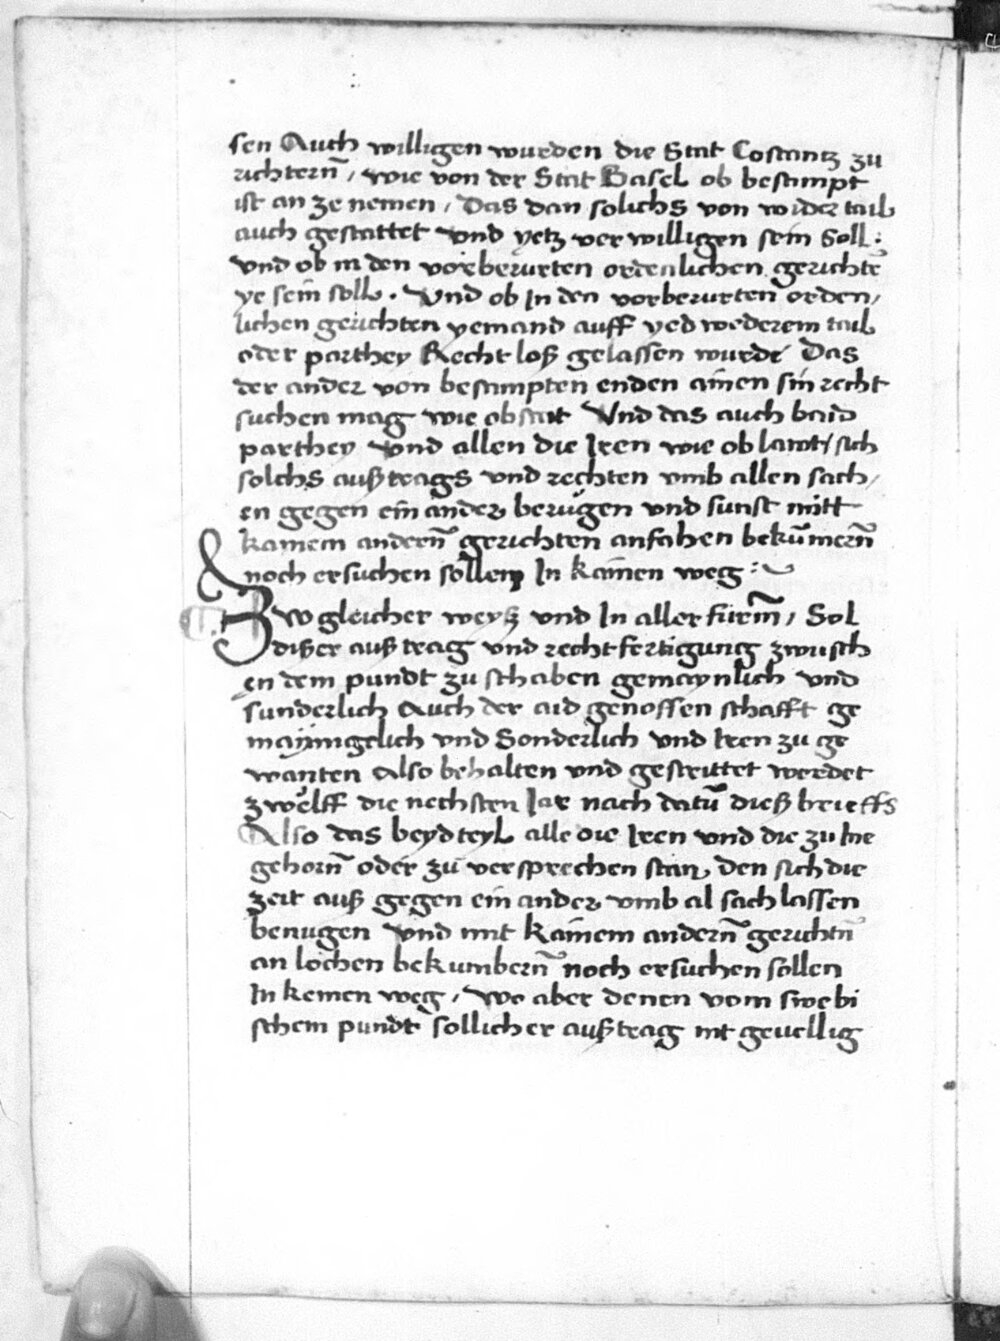 sen Auch willigen wurden die Stat Costantz zu
richtern̄, wie von der Stat Basel ob bestimpt
ist an ze nemen, Das dan solichs von wider tail
auch gestattet vnd yetz ver willigen sein Soll:
vnd ob in den vorberurten ordenlichen gerichtē
ye sein soll. Vnd ob In den vorberurten orden,
lichen gerichten yemand auff yed wederem tail
oder parthey Recht loß gelassen wurde Das
der ander von bestimpten enden ainen sin recht
suchen mag wie obstat Vnd das auch baid
parthey vnd allen die Iren wie ob lawt, sich
solchs außtrags vnd rechten vmb allen sach,
en gegen ein ander benugen vnd sunst mitt
kainem andern̄ gerichten anfahen bekūmern̄
noch ersuchen sollen In kainen weg:
Zw gleicher weyß vnd In aller fürm̄, Sol
dißer auß trag vnd recht fertigung zwisch
en dem pundt zu schaben gemaynlich vnd
sunderlich Auch der aid genossen schafft ge
maynigelich vnd Sonderlich vnd Iren zu ge
wanten Also behalten vnd gestrittet werdet
zwölff die nechsten Jar nach datū dieß brieffs
Also das beyd teyl alle die Iren vnd die zu Ine
gehorn̄ oder zu versprechen stan, den sich die
zeit auß gegen ein ander vmb al sach lassen
benugen Vnd mit kainem andern̄ gerichtn̄
an lochen bekumbern̄ noch ersuchen sollen
In keinen weg, Wo aber denen vom swebi
schem pundt sollicher außtrag nit geuellig